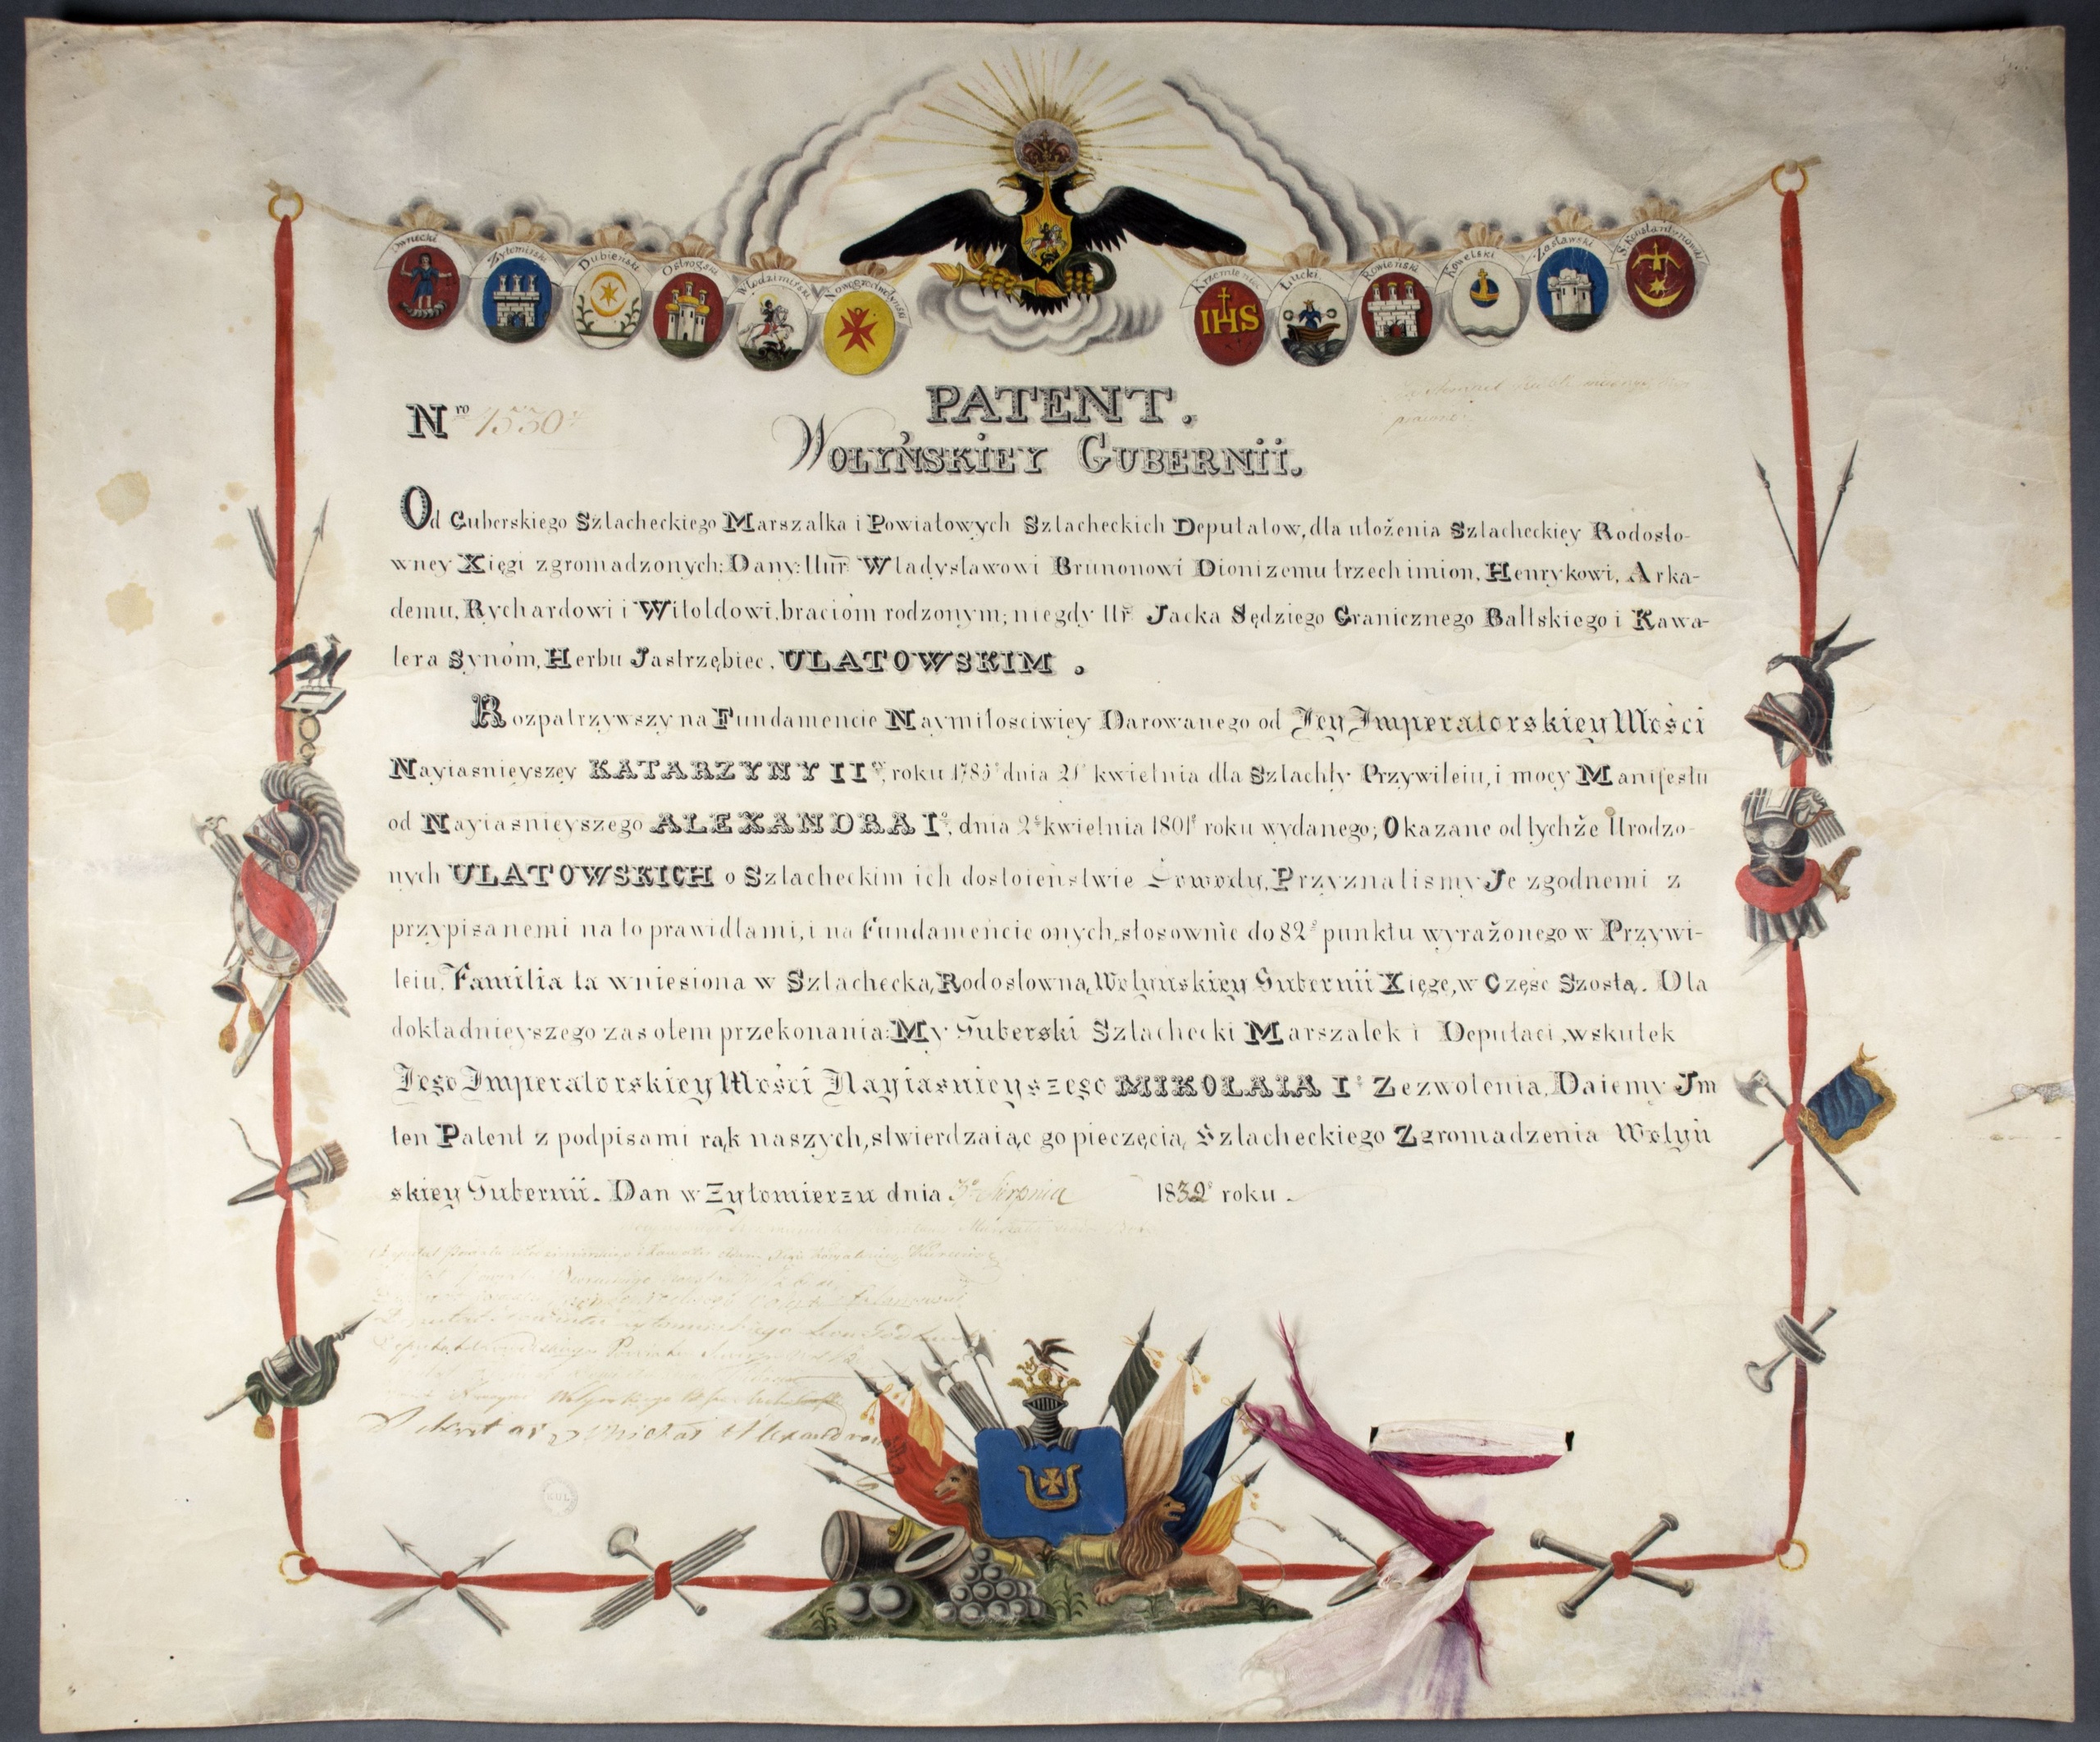 Owrucki
Żytomirski
Dubieński
Ostrogski
Włodzimirski
Nowogradwołyński
Krzemieniec
Łucki
Rowieński
Kowelski
Zasławski
S. Konstantynowski
IHS
PATENT.
Nro 1550
WOŁYŃSKIEY GUBERNII.
Od Guberskiego Szlacheckiego Marszałka i Powiatowych Szlacheckich Deputatow, dla ułożenia Szlacheckiey Rodosło-
wney Xięgi zgromadzonych; Dany: Uur Władysławowi Brunonowi Dionizemu trzech imion, Henrykowi, Arka-
demu, Rychardowi i Witoldowi, braciom rodzonym; niegdy Ur Jacka Sędziego Granicznego Baltskiego i Kawa-
lera Synom, Herbu Jastrzębiec, ULATOWSKIM.
Rozpatrzywszy na Fundamencie Naymiłosciwiey Darowanego od Jey Imperatorskiey Mości
Nayiasnieyszey KATARZYNY IIey, roku 1785o dnia 21o kwietnia dla Szlachty Przywileiu, i mocy Manifestu
od Nayiasnieyszego ALEXANDRA Io, dnia 2o kwietnia 1801o roku wydanego; Okazane od tychże Urodzo-
nych ULATOWSKICH o Szlacheckim ich dostoieństwie Dowody, Przyznalismy Je zgodnemi z
przypisanemi na to prawidłami, i na Fundamencie onych, stosownie do 82o punktu wyrażonego w Przywi-
leiu, Familia ta wniesiona w Szlachecką Rodosłowną Wołyńskiey Gubernii Xięgę, w Częsc Szostą. Dla
dokładnieyszego zas otem przekonania: My Guberski Szlachecki Marszałek i Deputaci, wskutek
Jego Imperatorskiey Mości Nayiasnieyszego MIKOŁAIA Io Zezwolenia, Daiemy Jm
ten Patent z podpisami rąk naszych, stwierdzaiąc go pieczęcią Szlacheckiego Zgromadzenia Wołyń
skiey Gubernii. Dan w Żytomierzu dnia 3o Sierpnia 1832o roku.
Deputat Powiatu
Powiatu
Deputat Powiatu Żytomirskiego Leon
Powiatu
Sekretarz Michał Alexandrowicz
KUL